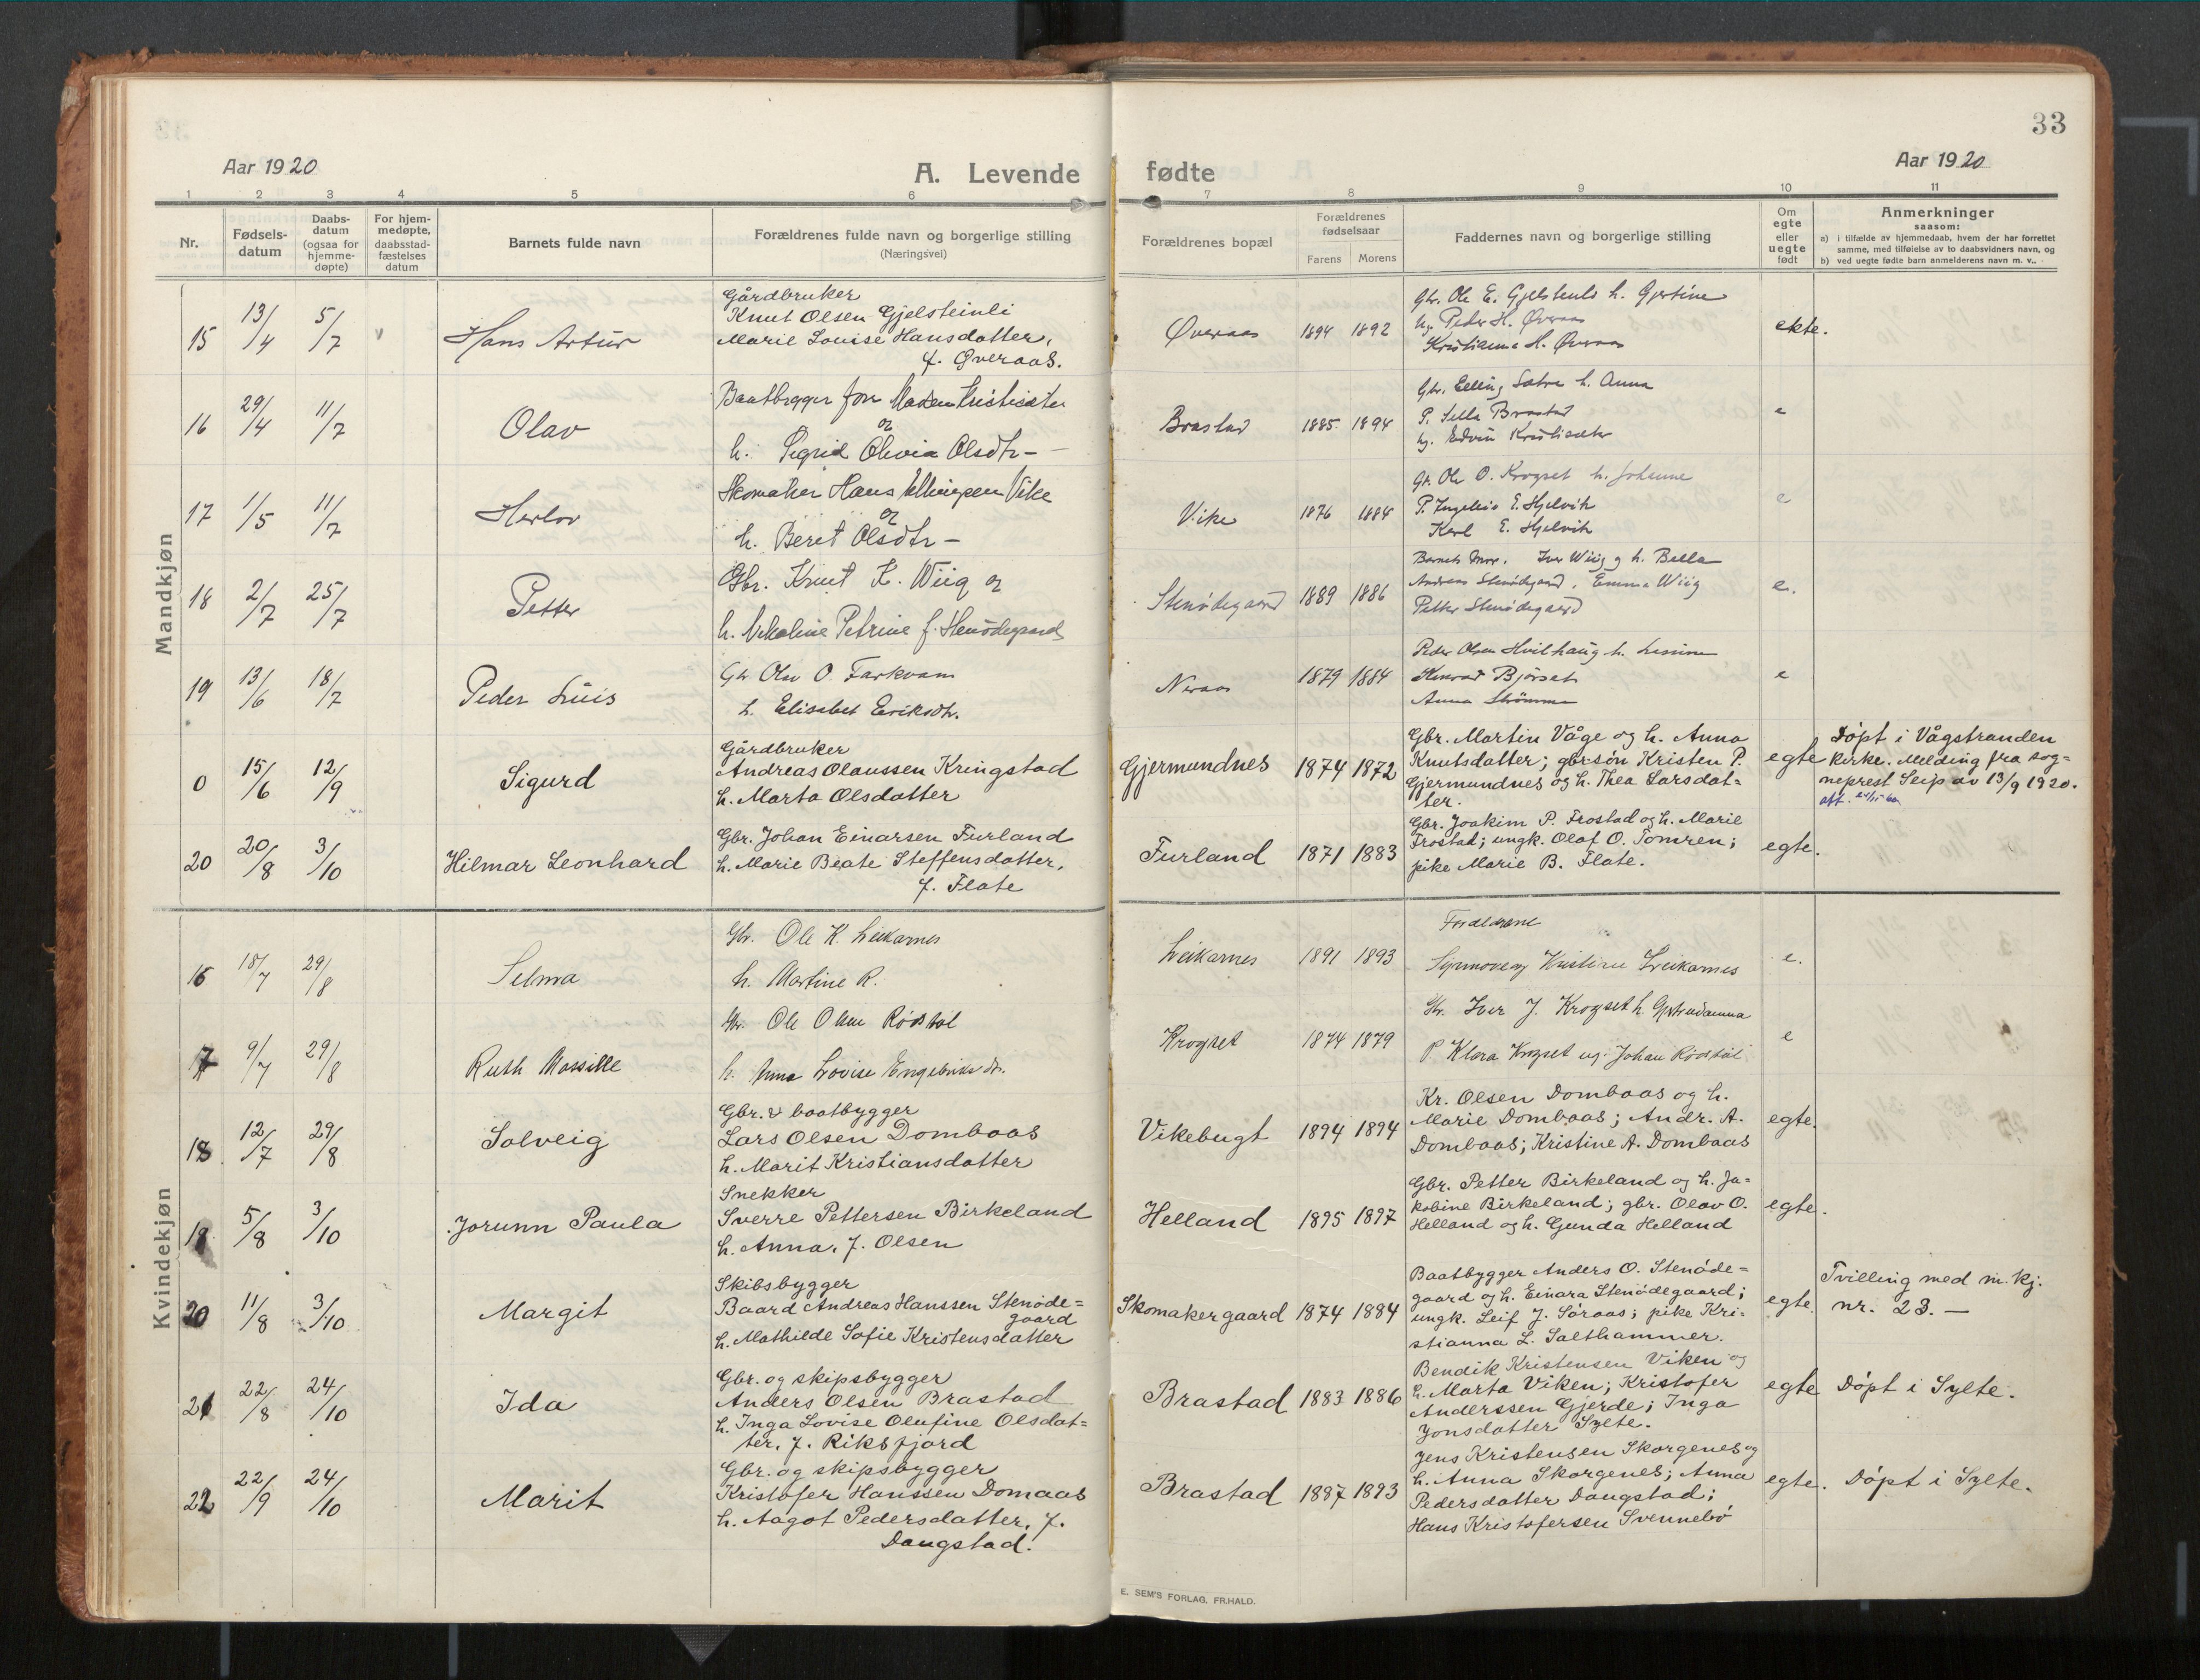 33
Aar 1920
A. Levende fødte
Aar 1920
1 2 3 4 5 6 7 8 9 10 11
Nr.
Fødsels-
datum
Daabs-
datum
(ogsaa for
hjemme-
døpte)
For hjem-
medøpte,
daabsstad-
fæstelses
datum
Barnets fulde navn
Forældrenes fulde navn og borgerlige stilling
(Næringsvei)
Forældrenes bopæl
Forældrenes
fødselsaar
Farens Morens
Faddernes navn og borgerlige stilling
Om
egte
eller
uegte
født
Anmerkninger
saasom:
a) i tilfælde av hjemmedaab, hvem der har forrettet
samme, med tilføielse av to daabsvidners navn, og
b) ved uegte fødte barn anmelderens navn m. v..
Mandkjøn
15 13/4 5/7 v Hans Artur
Gårdbruker
Knut Olsen Gjelsteinli
Marie Louise Hansdatter,
f. Øveraas.
Øveraas 1894 1892
Gbr. Ole E. Gjelstenli h. Gjertine
Ug. Peder H. Øveraas
Kristianna H. Øveraas
ekte.
16 29/4 11/7 Olav
Baatbygger
og
h. Sigrid Olivia Olsdtr -
Brastad 1885 1894
Gbr. Elling Sætre h. Anna
P. Sella Brastad
Ug. Edvin
e
17 1/5 11/7 Herlov
Skomaker Hans Vike
og
h. Beret Olsdtr -
Vike 1876 1884
Gb. Ole O. Krogset h. Johanne
P. E. Hjelvik
Karl E. Hjelvik
e
18 2/7 25/7 Petter
Gbr. Knut K. Wiig og
h. Nikoline Petrine f. Stenødegaard
Stenødegaard 1889 1886
Barnets Mor. Iver Wiig og h. Bella
Andreas Stenødegaard, Emma Wiig
Petter Stenødegaard
e.
19 13/6 18/7 Peder Luis
Gbr Olav O. Farkvam
h. Elisabet Eriksdtr.
Neraas 1879 1884
Peder Olsen Hvilhaug h.
Konrad Bjørset
Anna Strømme
e
0 15/6 12/9 Sigurd
Gårdbruker
Andreas Olaussen Kringstad
h. Marta Olsdatter
Gjermundnes 1874 1872
Gbr. Martin Våge og h. Anna
Knutsdatter; gbrsøn Kristen P.
Gjermundnes og h. Thea Larsdat-
ter.
egte
Døpt i Vågstranden
kirke. Melding fra sog-
neprest Seip av 13/9 1920.
att.
20 20/8 3/10 Hilmar Leonhard
Gbr. Johan Einarsen Furland
h. Marie Beate Steffensdatter,
f. Flate
Furland 1871 1883
Gbr. Joakim P. Frostad og h. Marie
Frostad; ungk. Olaf O. Tomren;
pike Marie B. Flate.
egte.
Kvindekjøn
16 18/7 29/8 Selma
Gbr. Ole K. Leikarnes
h. Martine R.
Leikarnes 1891 1893
Foreldrene
Synnove og Kristine Leikarnes
e.
17 9/7 29/8 Ruth Massille
Gbr. Ole Olsen Rødstøl
h. Anna Lovise Engebriksdtr.
Krogset 1874 1879
Gbr. Iver J. Krogset h. Gjertrudanna
P. Klara Krogset ug. Johan Rødstøl
e
18 12/7 29/8 Solveig
Gbr. & baatbygger
Lars Olsen Dombaas
h. Marit Kristiansdatter
Vikebugt 1894 1894
Kr. Olsen Dombaas og h.
Marie Dombaas; Andr. A.
Dombaas; Kristine A. Dombaas
egte.
19 5/8 3/10 Jorunn Paula
Snekker
Sverre Pettersen Birkeland
h. Anna, f. Olsen
Helland 1895 1897
Gbr. Petter Birkeland og h. Ja-
kobine Birkeland; gbr. Olav O.
Helland og h. Gunda Helland
egte.
20 11/8 3/10 Margit
Skibsbygger
Baard Andreas Hanssen Stenøde=
gaard
h. Mathilde Sofie Kristensdatter
Skomakergaard 1874 1884
Baatbygger Anders O. Stenøde=
gaard og h. Einara Stenødegaard;
ungk. Leif J. Søraas; pike Kri-
stianna L. Salthammer.
egte.
Tvilling med m. kj.
nr. 23. —
21 22/8 24/10 Ida
Gbr. og skipsbygger
Anders Olsen Brastad
h. Inga Lovise Olufine Olsdat=
ter, f. Riksfjord
Brastad 1883 1886
Bendik Kristensen Viken og
h. Marta Viken; Kristofer
Anderssen Gjerde; Inga
Jonsdatter Sylte.
egte
Døpt i Sylte.
22 22/9 24/10 Marit
Gbr. og skipsbygger
Kristofer Hanssen Domaas
h. Aagot Pedersdatter, f.
Daugstad.
Brastad 1887 1893
Jens Kristensen Skorgenes og
h. Anna Skorgenes; Anna
Pedersdatter Daugstad;
Hans Kristofersen Svennebø
egte.
Døpt i Sylte.
E. SEM'S FORLAG, FR.HALD.